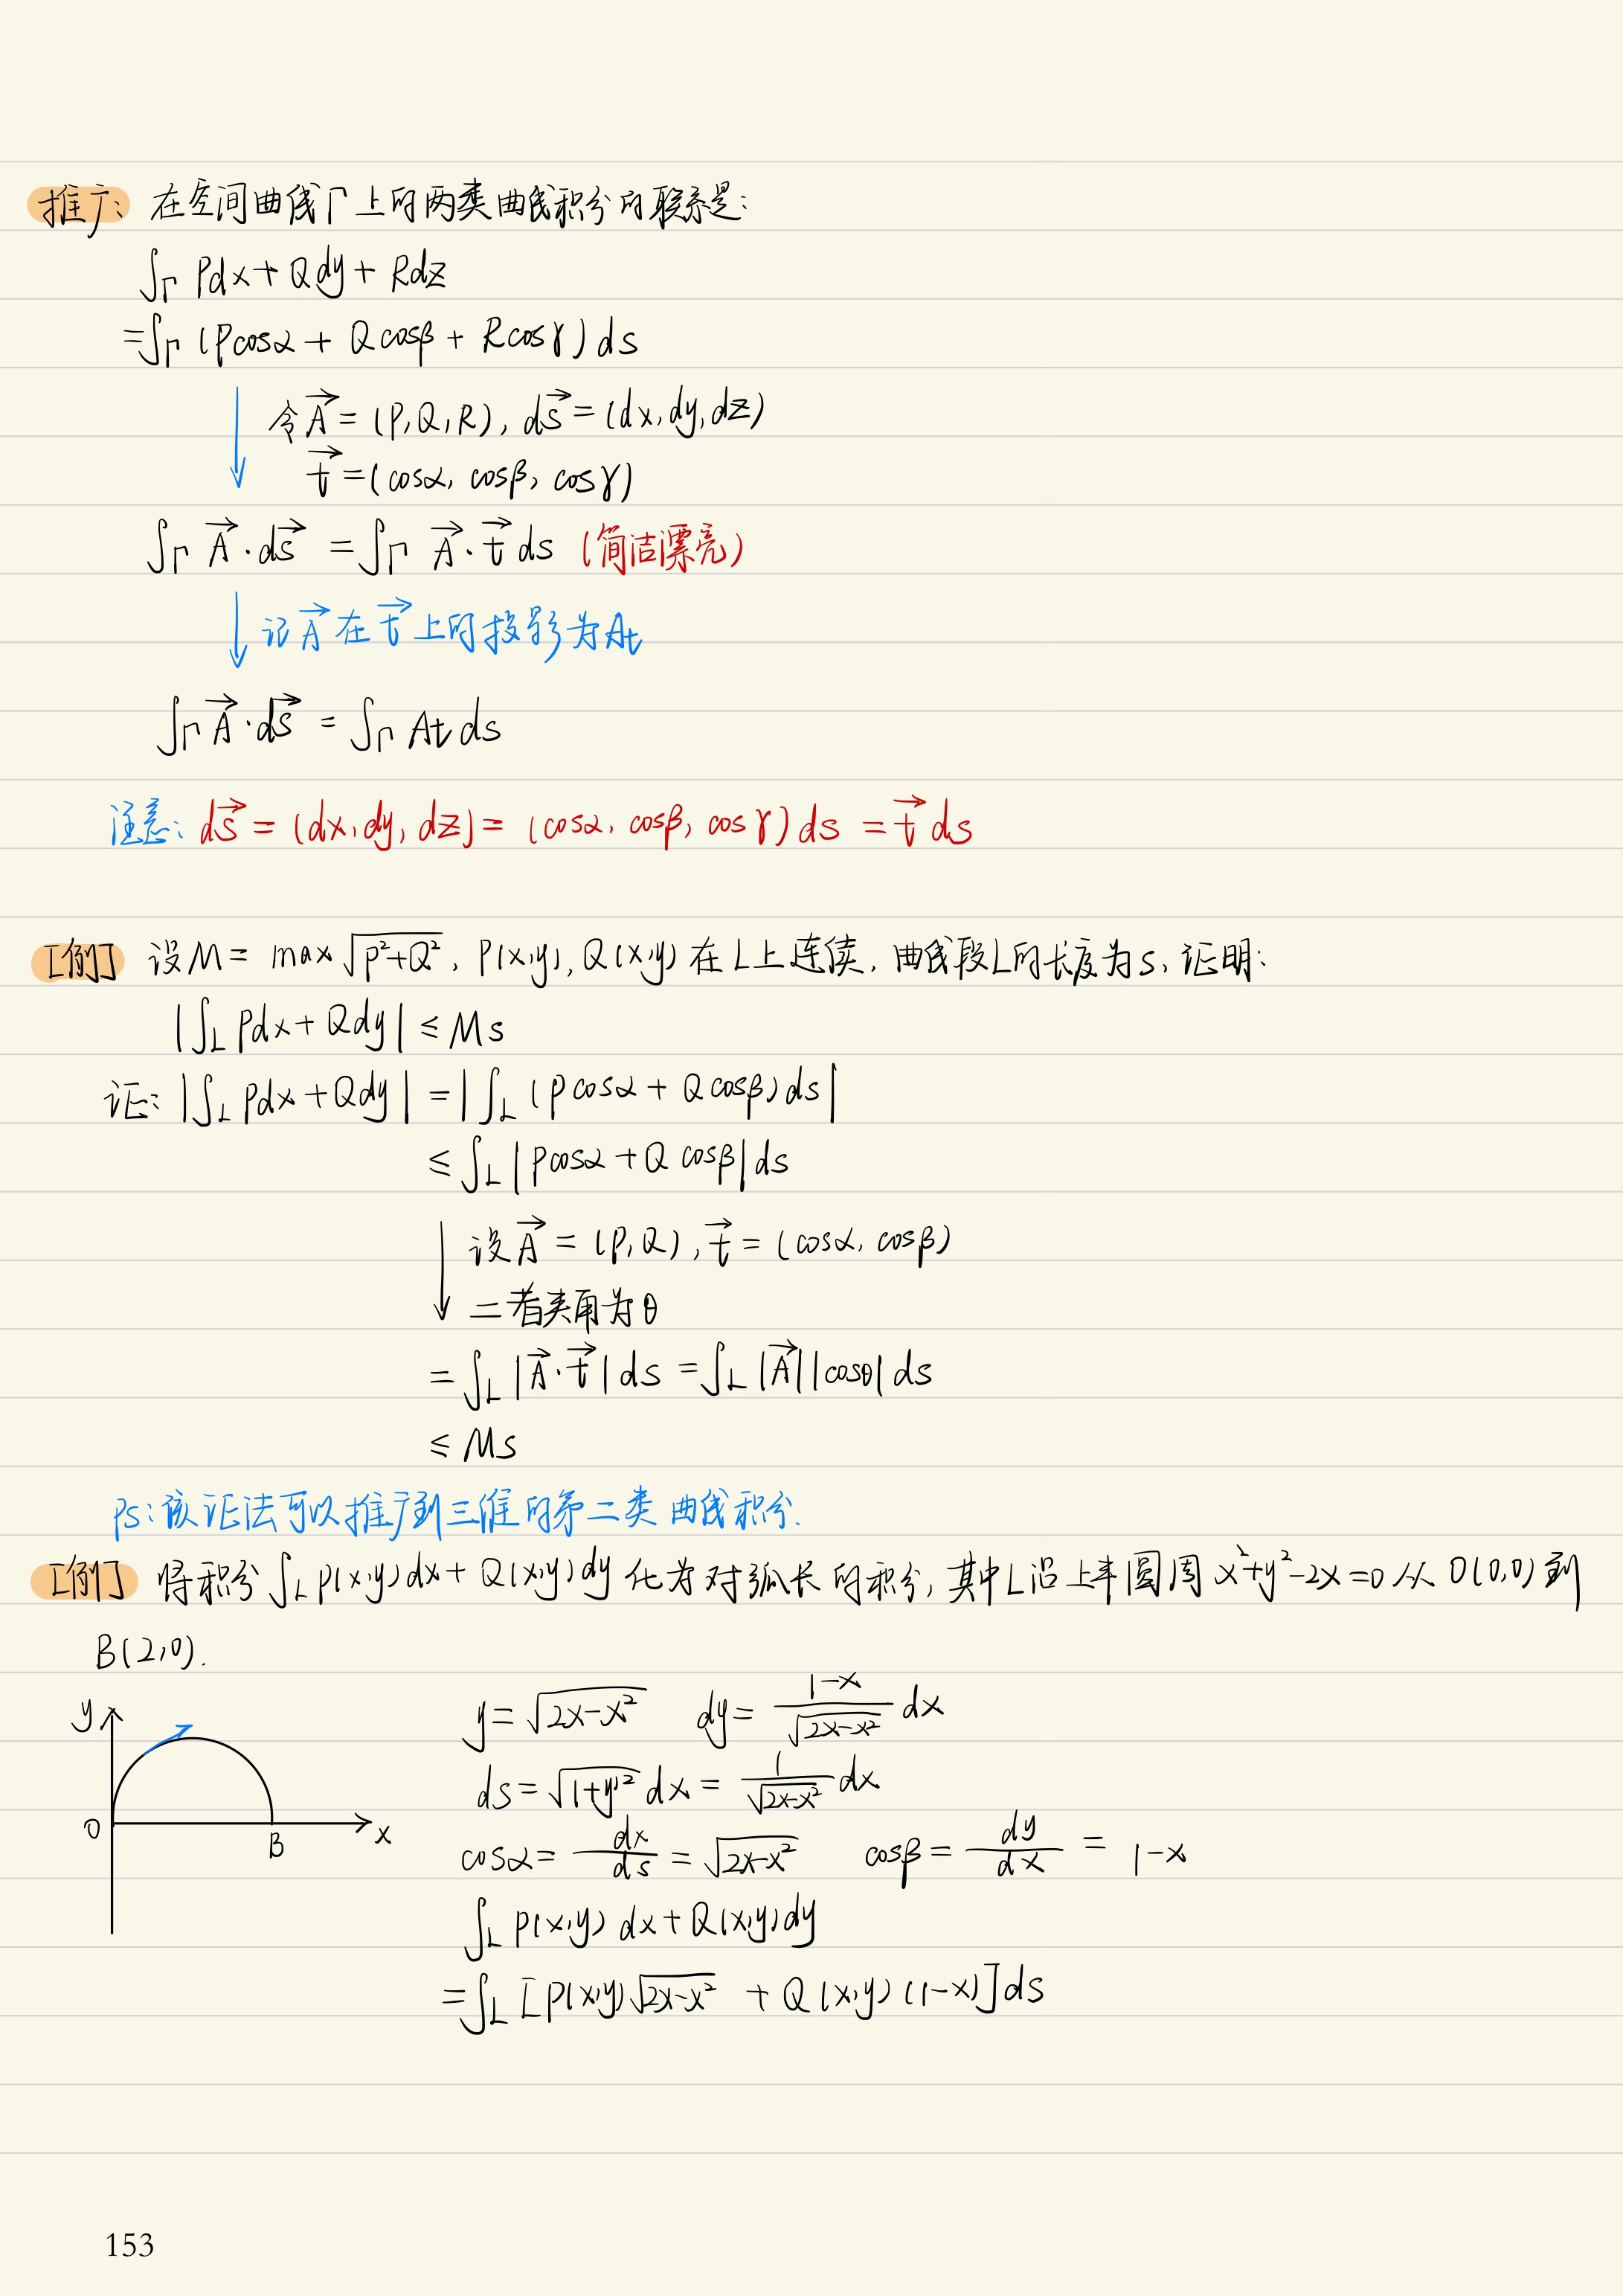 推广: 在空间曲线Γ上的两类曲线积分的联系是:
∫Γ Pdx+Qdy+Rdz
=∫Γ (Pcosα+Qcosβ+Rcosγ)ds
↓ 令A⃗=(P,Q,R), ds⃗=(dx,dy,dz)
t⃗=(cosα, cosβ, cosγ)
∫Γ A⃗·ds⃗ = ∫Γ A⃗·t⃗ ds (简洁漂亮)
↓ 记A⃗在t⃗上的投影为At
∫Γ A⃗·ds⃗ = ∫Γ At ds
注意: ds⃗=(dx,dy,dz)=(cosα, cosβ, cosγ)ds=t⃗ds
[例] 设M=max√(P²+Q²), P(x,y), Q(x,y)在L上连续, 曲线段L的长度为s, 证明:
|∫L Pdx+Qdy| ≤ Ms
证: |∫L Pdx+Qdy| = |∫L (Pcosα+Qcosβ)ds|
≤ ∫L |Pcosα+Qcosβ|ds
↓ 设A⃗=(P,Q), t⃗=(cosα, cosβ)
二者夹角为θ
= ∫L |A⃗·t⃗|ds = ∫L |A⃗||cosθ|ds
≤ Ms
ps: 该证法可以推广到三维的第二类曲线积分.
[例] 将积分∫L P(x,y)dx+Q(x,y)dy化为对弧长的积分, 其中L沿上半圆周x²+y²-2x=0从O(0,0)到
B(2,0).
y=√(2x-x²) dy=(1-x)/√(2x-x²) dx
ds=√(1+y'²)dx=1/√(2x-x²) dx
cosα=dx/ds=√(2x-x²) cosβ=dy/dx=1-x
∫L P(x,y)dx+Q(x,y)dy
=∫L [P(x,y)√(2x-x²)+Q(x,y)(1-x)]ds
y
O
B
x
153